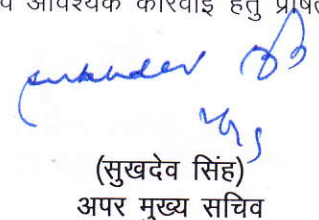 व आवश्यक कार्रवाई हेतु प्रेषित
(सुखदेव सिंह)
अपर मुख्य सचिव